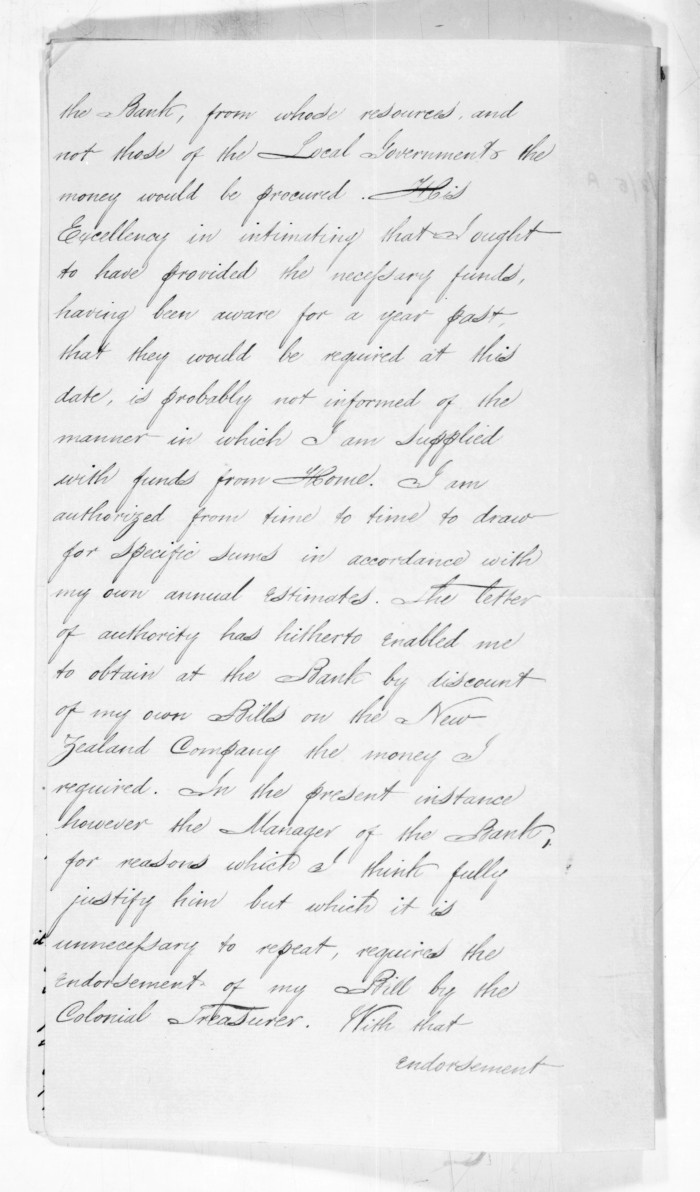 the Bank, from whose resources, and
not those of the Local Government, the
money would be procured. His
Excellency in intimating that I ought
to have provided the necessary funds,
having been aware for a year past,
that they would be required at this
date, is probably not informed of the
manner in which I am supplied
with funds from Home. I am
authorized from time to time to draw
for specific sums in accordance with
my own annual Estimates. The letter
of authority has hitherto enabled me
to obtain at the Bank by discount
of my own Bills on the New
Zealand Company the money I
required. In the present instance
however the Manager of the Bank,
for reasons which I think fully
justify him but which it is
unnecessary to repeat, requires the
Endorsement of my Bill by the
Colonial Treasurer. With that
endorsement